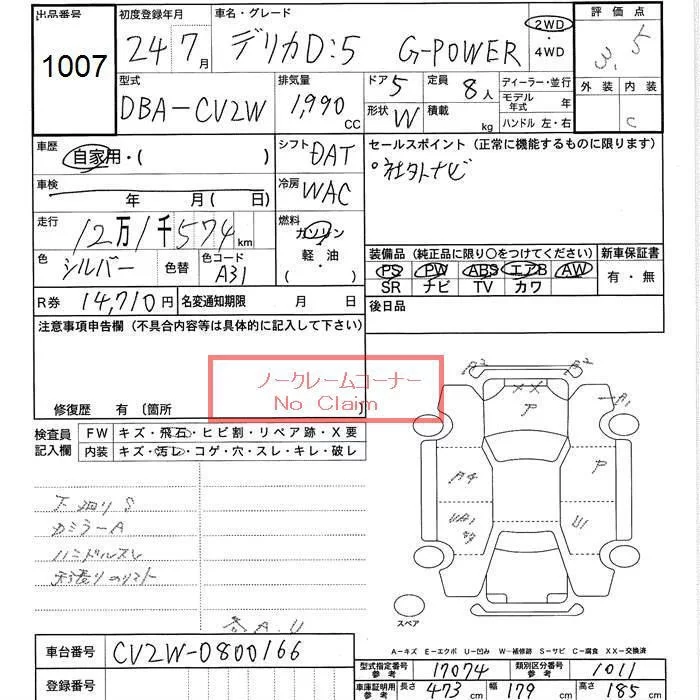 出品番号
1007
初度登録年月
24 7月
車名・グレード
デリカD:5 G-POWER
2WD
・
4WD
評価点
3.5
外装 内装
C
型式
DBA-CV2W
排気量
1,990 CC
ドア 5
形状 W
定員 8人
積載 kg
ディーラー・並行
モデル年式 年
ハンドル 左・右
車歴
自家用・( )
シフト DAT
セールスポイント (正常に機能するものに限ります)
°社外ナビ
車検
年 月 ( 日)
冷房 WAC
走行
12万1千574km
燃料
ガソリン
軽・油
( )
色
シルバー
色替
色コード
A31
装備品 (純正品に限り○をつけてください)
PS PW ABS エアB AW
SR ナビ TV カワ
新車保証書
有・無
R券 14,710円
名変通知期限 月 日
後日品
注意事項申告欄 (不具合内容等は具体的に記入して下さい)
ノークレームコーナー
No Claim
修復歴 有 〔箇所 〕
検査員
記入欄
FW キズ・飛石・ヒビ割・リペア跡・X要
内装 キズ・汚レ・コゲ・穴・スレ・キレ・破レ
下廻りS
カミラーA
ハンドルスレ
各A.U
A2
A2
XX
A1
P
P
A4
UA1
U1
スペア
A-キズ E-エクボ U-凹み W-補修跡 S-サビ C-腐食 XX-交換済
車台番号 CV2W-0800166
登録番号
型式指定番号
参考
17074
類別区分番号
参考
1011
車庫証明用
参考
長さ 473cm
幅 179cm
高さ 185cm